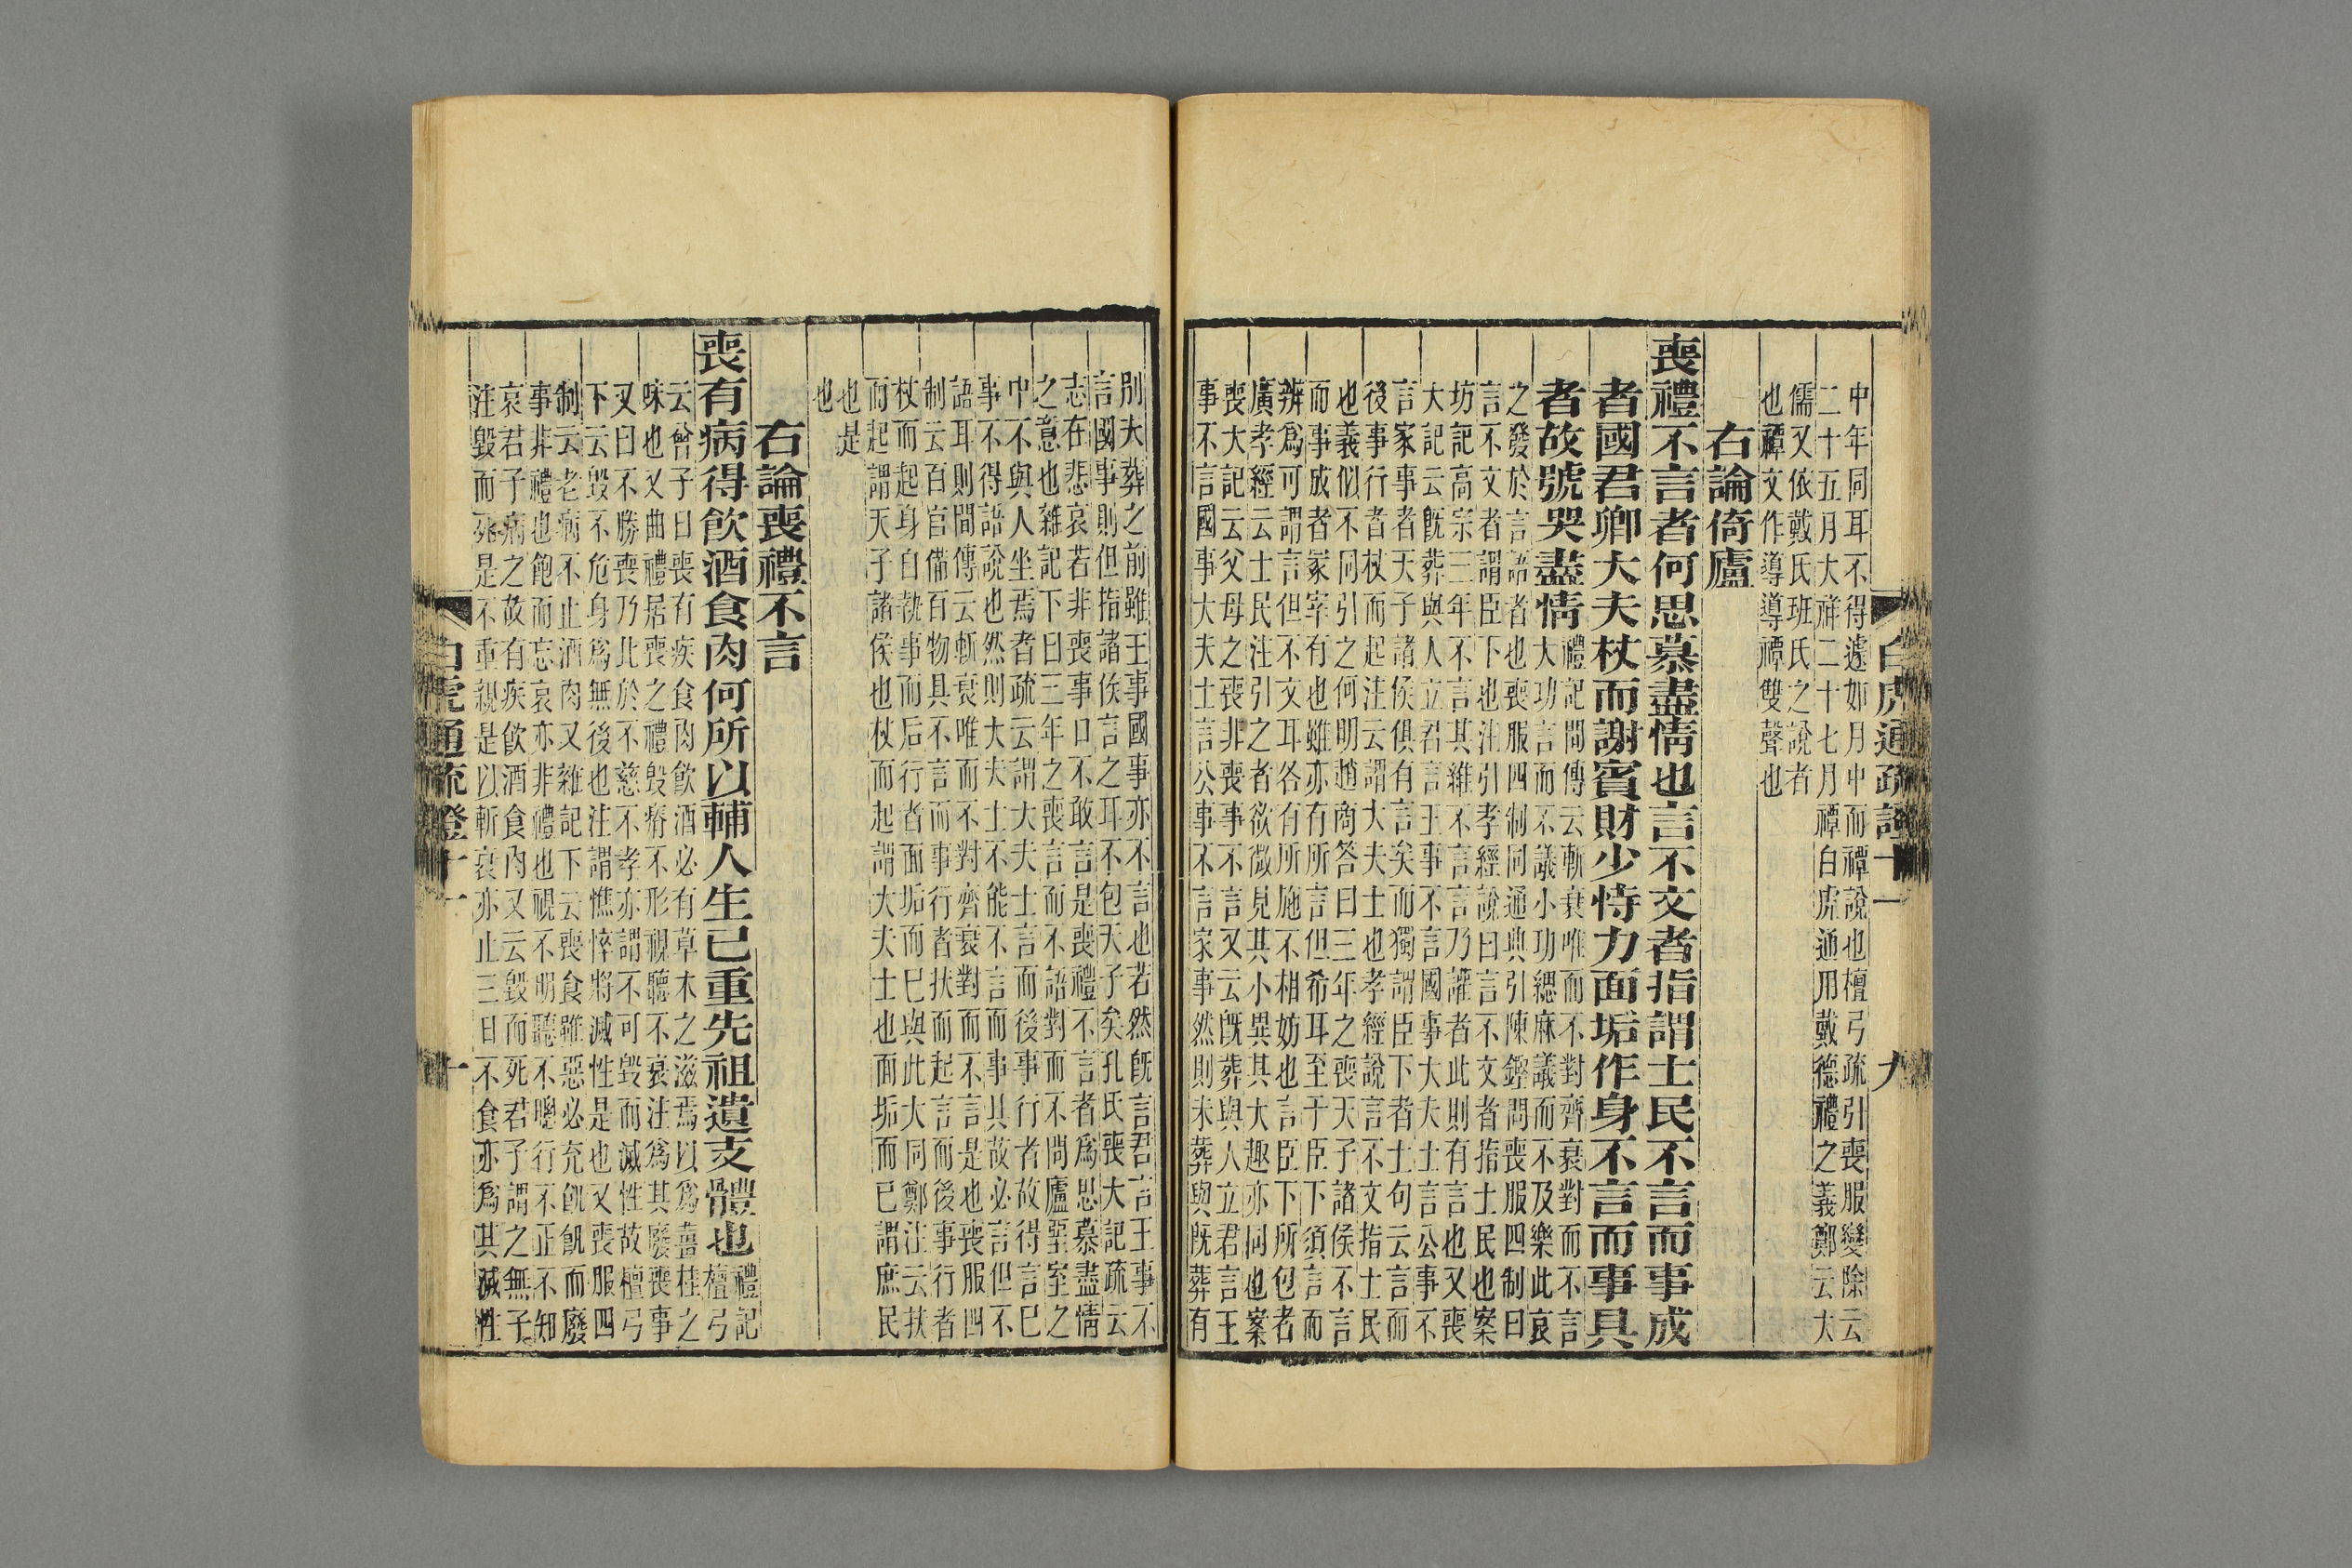 白虎通疏證十一
九
中年同耳不得遽如月中而禫說也檀弓疏引喪服變除云
二十五月大祥二十七月禫白虎通用戴德禮之義鄭云大
儒又依戴氏班氏之說者
也禫文作導導禫雙聲也
右論倚廬
喪禮不言者何思慕盡情也言不文者指謂士民不言而事成
者國君卿大夫杖而謝賓財少恃力面垢作身不言而事具
者故號哭盡情
禮記間傳云斬衰唯而不對齊衰對而不言
大功言而不議小功緦麻議而不及樂此哀
之發於言語者也喪服四制同通典引陳鏗問喪服四制曰
言不文者謂臣下也注引孝經說曰言不文者指士民也案
坊記高宗三年不言其維不言言乃讙者此則有言也又喪
大記云旣葬與人立君言王事不言國事大夫士言公事不
言家事者天子諸侯俱有言矣而獨謂臣下者士句云言而
後事行者杖而起注云謂大夫士也孝經說言不文指士民
也義似不同引之何明趙商答曰三年之喪天子諸侯不言
而事成者冢宰有也雖亦有所言但希耳至于臣下須言而
辨爲可謂言但不文耳各有所施不相妨也言臣下所包者
廣孝經云士民注引之者欲微見其小異其大趣亦同也案
喪大記云父母之喪非喪事不言又云旣葬與人立君言王
事不言國事大夫士言公事不言家事然則未葬與旣葬有
別大葬之前雖王事國事亦不言也若然旣言君言王事不
言國事則但指諸侯言之耳不包天子矣孔氏喪大記疏云
志在悲哀若非喪事口不敢言是喪禮不言者爲思慕盡情
之意也雜記下曰三年之喪言而不語對而不問廬堊室之
中不與人坐焉者疏云謂大夫士言而後事行者故得言已
事不得語說也然則大夫士不能不言而事具故必言但不
語耳則間傳云斬衰唯而不對齊衰對而不言是也喪服四
制云百官備百物具不言而事行者扶而起言而後事行者
杖而起身自執事而后行者面垢而已與此大同鄭注云扶
而起謂天子諸侯也杖而起謂大夫士也面垢而已謂庶民
也是
也
右論喪禮不言
喪有病得飮酒食肉何所以輔人生已重先祖遺支體也
禮記
檀弓
云曾子曰喪有疾食肉飮酒必有草木之滋焉以爲薑桂之
味也又曲禮居喪之禮毀瘠不形視聽不衰注爲其廢喪事
又曰不勝喪乃此於不慈不孝亦謂不可毀而滅性故檀弓
下云毀不危身爲無後也注謂憔悴將滅性是也又喪服四
制云老病不止酒肉又雜記下云喪食雖惡必充飢飢而廢
事非禮也飽而忘哀亦非禮也視不明聽不聰行不正不知
哀君子病之故有疾飮酒食肉又云毀而死君子謂之無子
注毀而死是不重親是以斬衰亦止三日不食亦爲其滅性
白虎通疏證十一
十